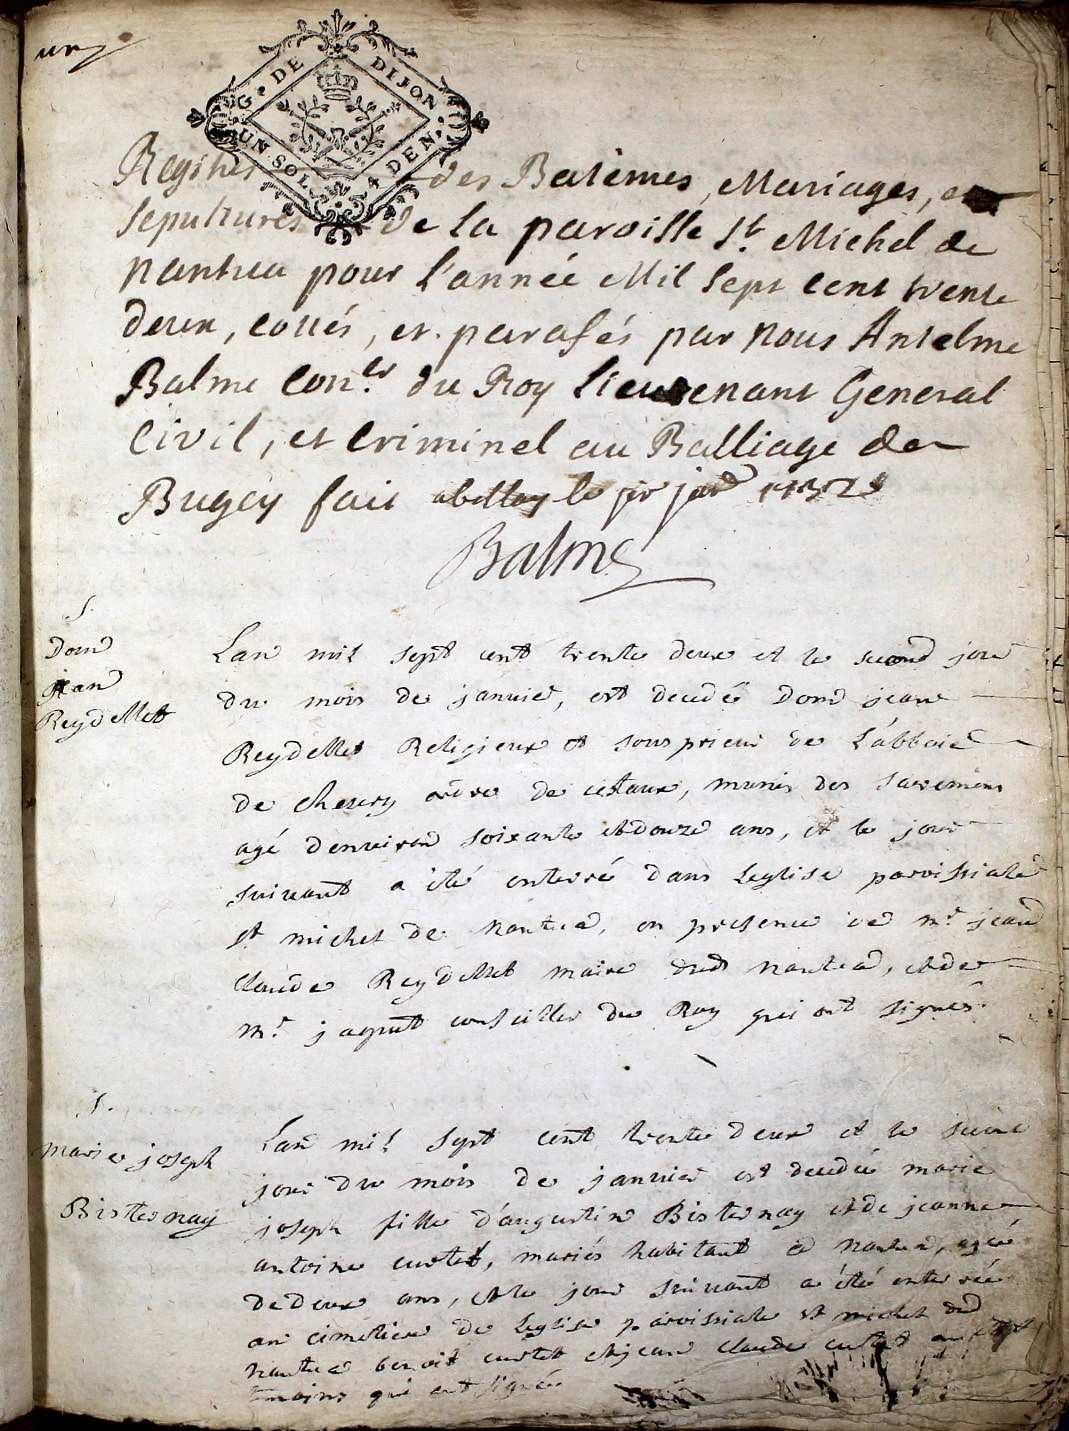 un
G. DE DIJON
UN SOL 4 DEN.
Registres des Batêmes, Mariages, et
sepultures de la paroisse St. Michel de
Nantua pour l'année Mil sept cent trente
deux, cottés, et parafés par nous Antelme
Balme Con.er du Roy Lieutenant General
Civil, et Criminel au Balliage de
Bugey fait a belley le pr janr 1732
Balme
S.
Dom
jean
Reydellet
Lan mil sept cent trente deux et le second jour
du mois de janvier, est decedé Dom jean
Reydellet Religieux et sous prieur de L'abbaie
de Chezery ordre de citeaux, munis des sacremens
agé denviron soixante et douze ans, et le jour
suivant a été enterré dans Leglise parroissiale
st michel de Nantua, en presence de mr. jean
claude Reydellet maire dud Nantua, et de
mr. jagout conseiller du Roy qui ont signés
S.
marie joseph
Bisternay
Lan mil sept cent trente deux et le second
jour du mois de janvier est decedée marie
joseph fille d'augustin Bisternay et de jeanne
antoine curtet, mariés habitant a Nantua, agée
de deux ans, et le jour suivant a été enterrée
au cimetiere de Leglise parroissiale st michel de
Nantua benoit curtet et jean claude curtet
temoins qui ont signés